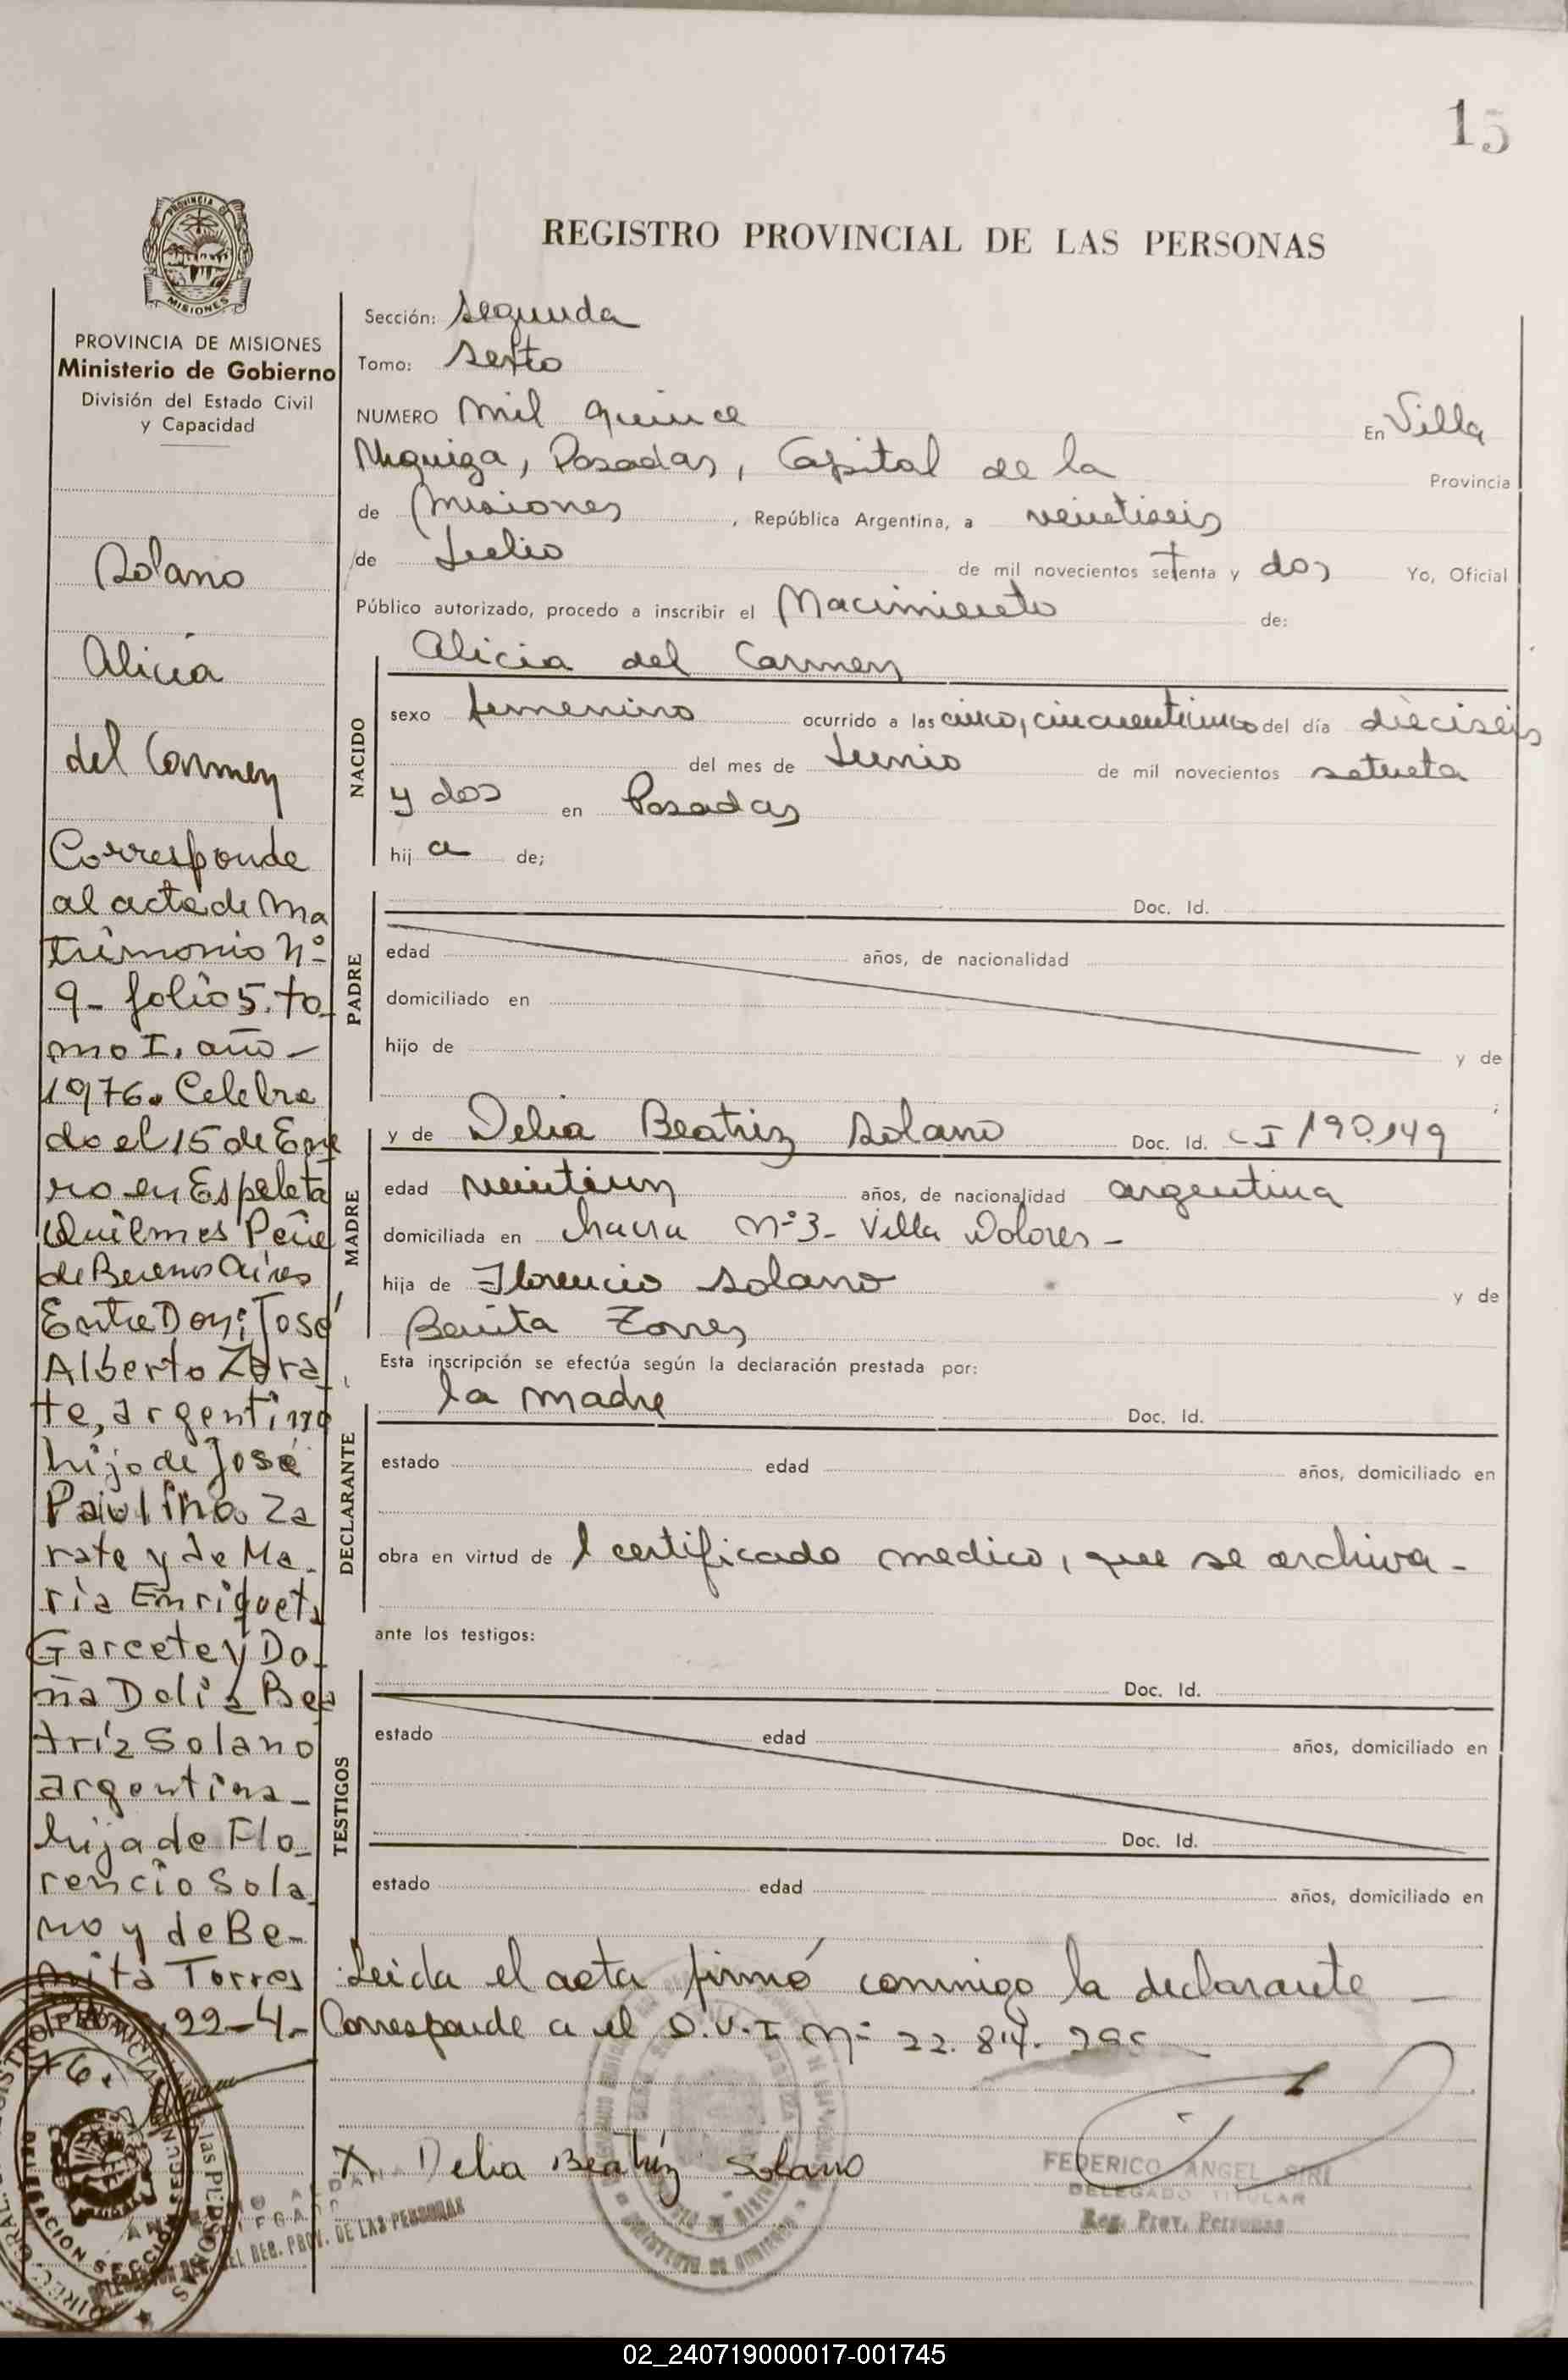 15
PROVINCIA DE
MISIONES
REGISTRO PROVINCIAL DE LAS PERSONAS
PROVINCIA DE MISIONES
Ministerio de Gobierno
División del Estado Civil
y Capacidad
Solano
Alicia
del Carmen
Corresponde
al acta de Ma
trimonio Nº
9- folio 5. to_
mo I. año -
1976. Celebra
do el 15 de Ene
ro en Espeleta
Quilmes Pcia
de Buenos Aires
Entre Don: José
Alberto Zára_
te, argentino
hijo de José
Paulino Za
rate y de Ma_
ría Enriqueta
Garcete y Do_
ña Delia Bea
tríz Solano
argentina_
hija de Flo_
rencio Sola_
no y de Be_
nita Torres
22-4-
76.
Sección: Segunda
Tomo: Sexto
NUMERO Mil quince En Villa
Urquiza, Posadas, Capital de la Provincia
de Misiones, República Argentina, a veintiseis
de Julio de mil novecientos setenta y dos Yo, Oficial
Público autorizado, procedo a inscribir el Nacimiento de:
NACIDO
Alicia del Carmen
sexo femenino ocurrido a las cinco, cincuenticinco del día dieciseis
del mes de Junio de mil novecientos setenta
y dos en Posadas
hij a de;
PADRE
Doc. Id.
edad años, de nacionalidad
domiciliado en
hijo de y de
;
MADRE
y de Delia Beatriz Solano Doc. Id. CI 190.149
edad veintiun años, de nacionalidad argentina
domiciliada en Chacra Nº 3- Villa Dolores -
hija de Florencio Solano y de
Benita Torres
Esta inscripción se efectúa según la declaración prestada por:
DECLARANTE
la madre Doc. Id.
estado edad años, domiciliado en
obra en virtud de l certificado medico, que se archiva -
ante los testigos:
TESTIGOS
Doc. Id.
estado edad años, domiciliado en
Doc. Id.
estado edad años, domiciliado en
Leida el acta firmó conmigo la declarante -
Corresponde a el D.U.I. Nº 22.814.
X Delia Beatríz Solano
FEDERICO ANGEL SIRI
DELEGADO TITULAR
Reg. Prov. Personas
REG. PROV. DE LAS PERSONAS
02_240719000017-001745